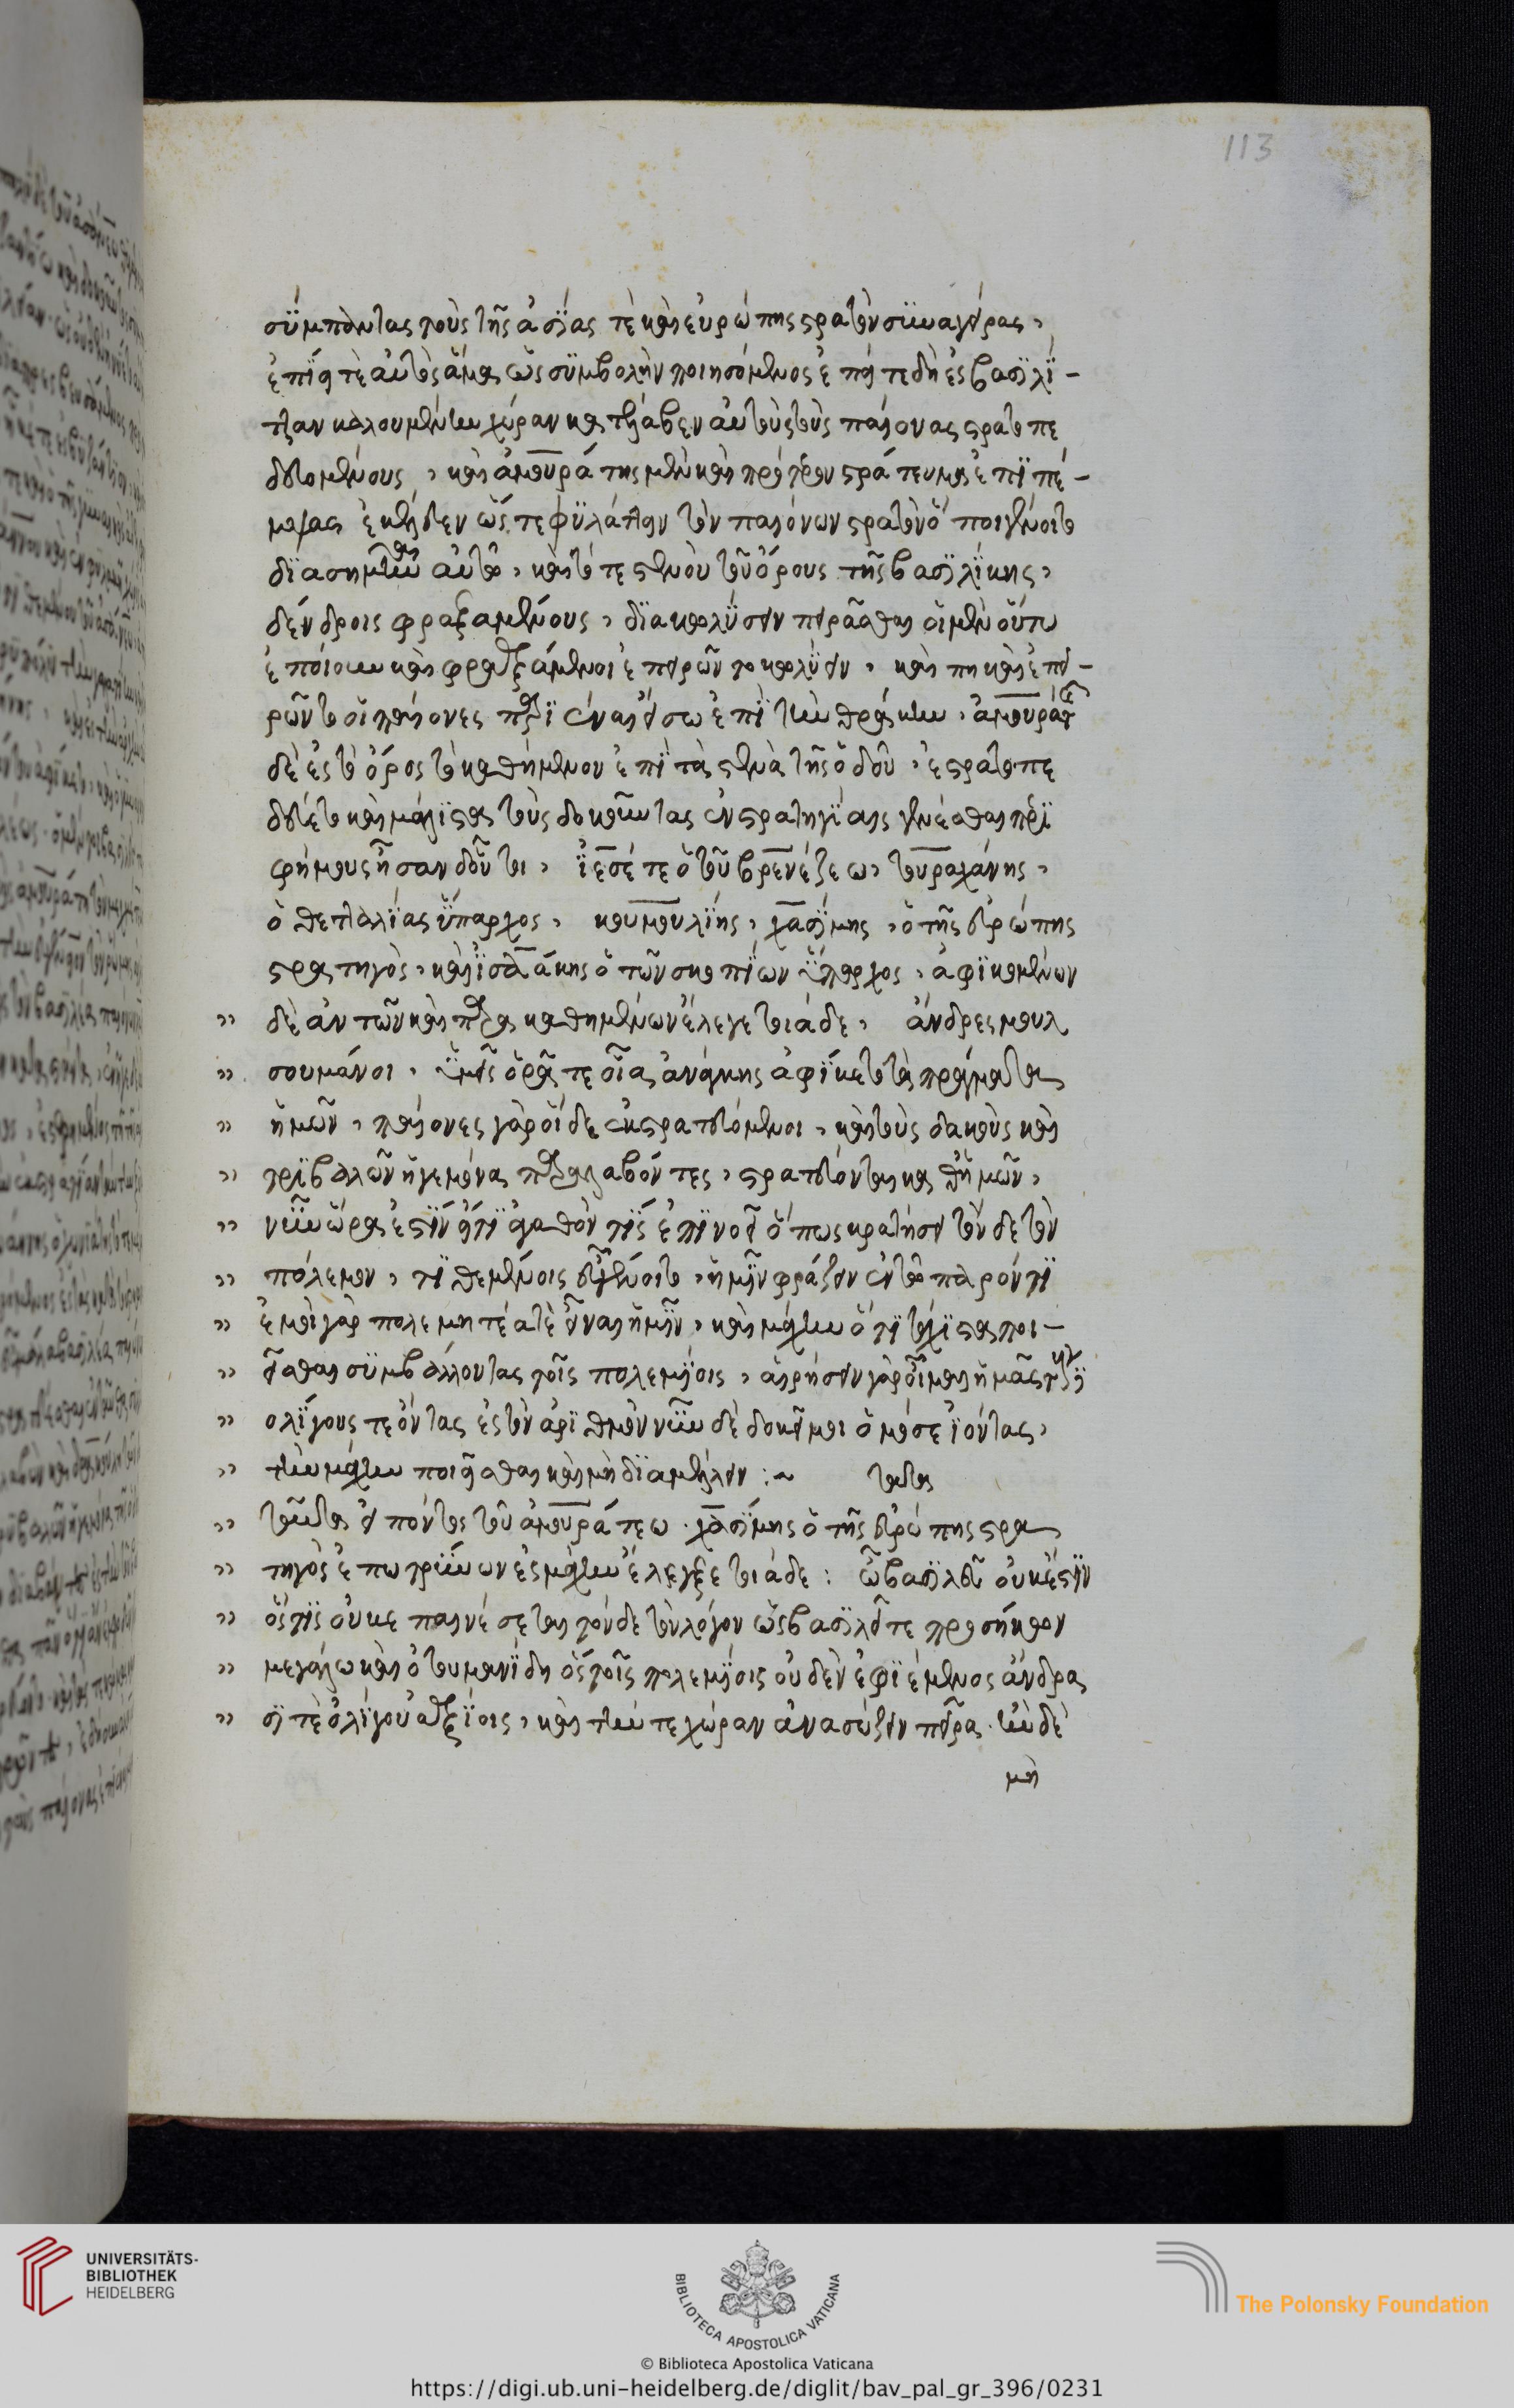 σύμπαντας τοὺς τῆς ἀσίας τὲ καὶ εὐρώπης στρατὸν συναγείρας,
ἐπῄει τὲ αὐτὸς ἅμα ὡς συμβολὴν ποιησόμενος ἐπεί τε δὴ ἐς βασιλί-
τζαν καλουμένην χώραν κατέλαβεν αὐτοὺς τοὺς παίονας στρατοπε
δευομένους, καὶ ἀμουράτης μὲν καὶ πρότερον στράτευμα ἐπιπέ-
μψας ἐκέλευεν ὥστε φυλάττειν τὸν παιόνων στρατὸν ὅποι γένοιτο
διασημῆναι αὐτῷ, καὶ τότε στενὸν τοῦ ὄρους τῆς βασιλίκης,
δένδροις φραξαμένους, διακωλύσειν πειρᾶσθαι οἱ μὲν οὕτω
ἐποίουν καὶ φραξάμενοι ἐπειρῶντο κωλύειν, καὶ πη καὶ ἐπει-
ρῶντο οἱ παίονες ἐπὶ τὴν θράκην, ἀμουράτης
δὲ ἐς τὸ ὄρος τὸ καθήμενον ἐπὶ τὰ στενὰ τῆς ὁδοῦ, ἐστρατοπε
δεύετο καὶ μάλιστα τοὺς δοκοῦντας ἐν στρατηγίαις γενέσθαι περὶ
φήμους ἦσαν δ' οὗτοι, ἰεσέ τε ὁ τοῦ βρενέζεω, τουραχάνης,
ὁ θετταλίας ὕπαρχος, κουμουλίης, χασίμης, ὁ τῆς εὐρώπης
στρατηγὸς, καὶ ἰσαάκης ὁ τῶν σκοπίων ὕπαρχος, ἀφικομένων
δὲ αὐτῶν καὶ παρακαθημένων ἔλεγε τοιάδε, ἄνδρες μουλ
σουμάνοι, ὑμεῖς ὁρᾶτε οἵας ἀνάγκης ἀφίκετο τὰ πράγματα
ἡμῶν, παίονες γὰρ οἵδε ἐκστρατευόμενοι, καὶ τοὺς δακοὺς καὶ
τριβαλλῶν ἡγεμόνα παραλαβόντες, στρατεύονται καθ' ἡμῶν,
νῦν ὥρα ἐστὶν εἴ τι ἀγαθὸν τίς ἐπινοεῖ ὅπως κρατήσει τόνδε τὸν
πόλεμον, τιθεμένοις εὖ γένοιτο, ἡμῖν φράζειν ἐν τῷ παρόντι
ἐμοὶ γὰρ πολεμητέα τὲ εἶναι ἡμῖν, καὶ μάχην ὅτι τάχιστα ποι-
εῖσθαι συμβάλλοντας τοῖς πολεμίοις, αἱρήσειν γὰρ οἶμαι ἡμᾶς
ὀλίγους τε ὄντας ἐς τὸν ἀριθμὸν νῦν δὲ δοκεῖ μοι ὁμόσε ἰόντας,
τὴν μάχην ποιεῖσθαι καὶ μὴ διαμέλλειν :~ ταῦτα
ταῦτα εἰπόντος τοῦ ἀμουράτεω. χασίμης ὁ τῆς εὐρώπης στρα
τηγὸς ἐποτρύνων ἐς μάχην ἔλεξε τοιάδε : ὦ βασιλεῦ οὐκ ἔστιν
ὅστις οὐκ ἐπαινέσεται τόνδε τὸν λόγον ὡς βασιλεῖ τε προσήκων
μεγάλῳ καὶ ὀτουμανίδῃ ὃς τοῖς πολεμίοις οὐδὲν ἐφιέμενος ἄνδρα
σί τὲ ὀλίγου ἀξίοις, καὶ τήν τε χώραν ἀνασώζειν πεῖρα. ἢν δὲ
μὴ
113
UNIVERSITÄTS-
BIBLIOTHEK
HEIDELBERG
BIBLIOTECA APOSTOLICA VATICANA
The Polonsky Foundation
© Biblioteca Apostolica Vaticana
https://digi.ub.uni-heidelberg.de/diglit/bav_pal_gr_396/0231